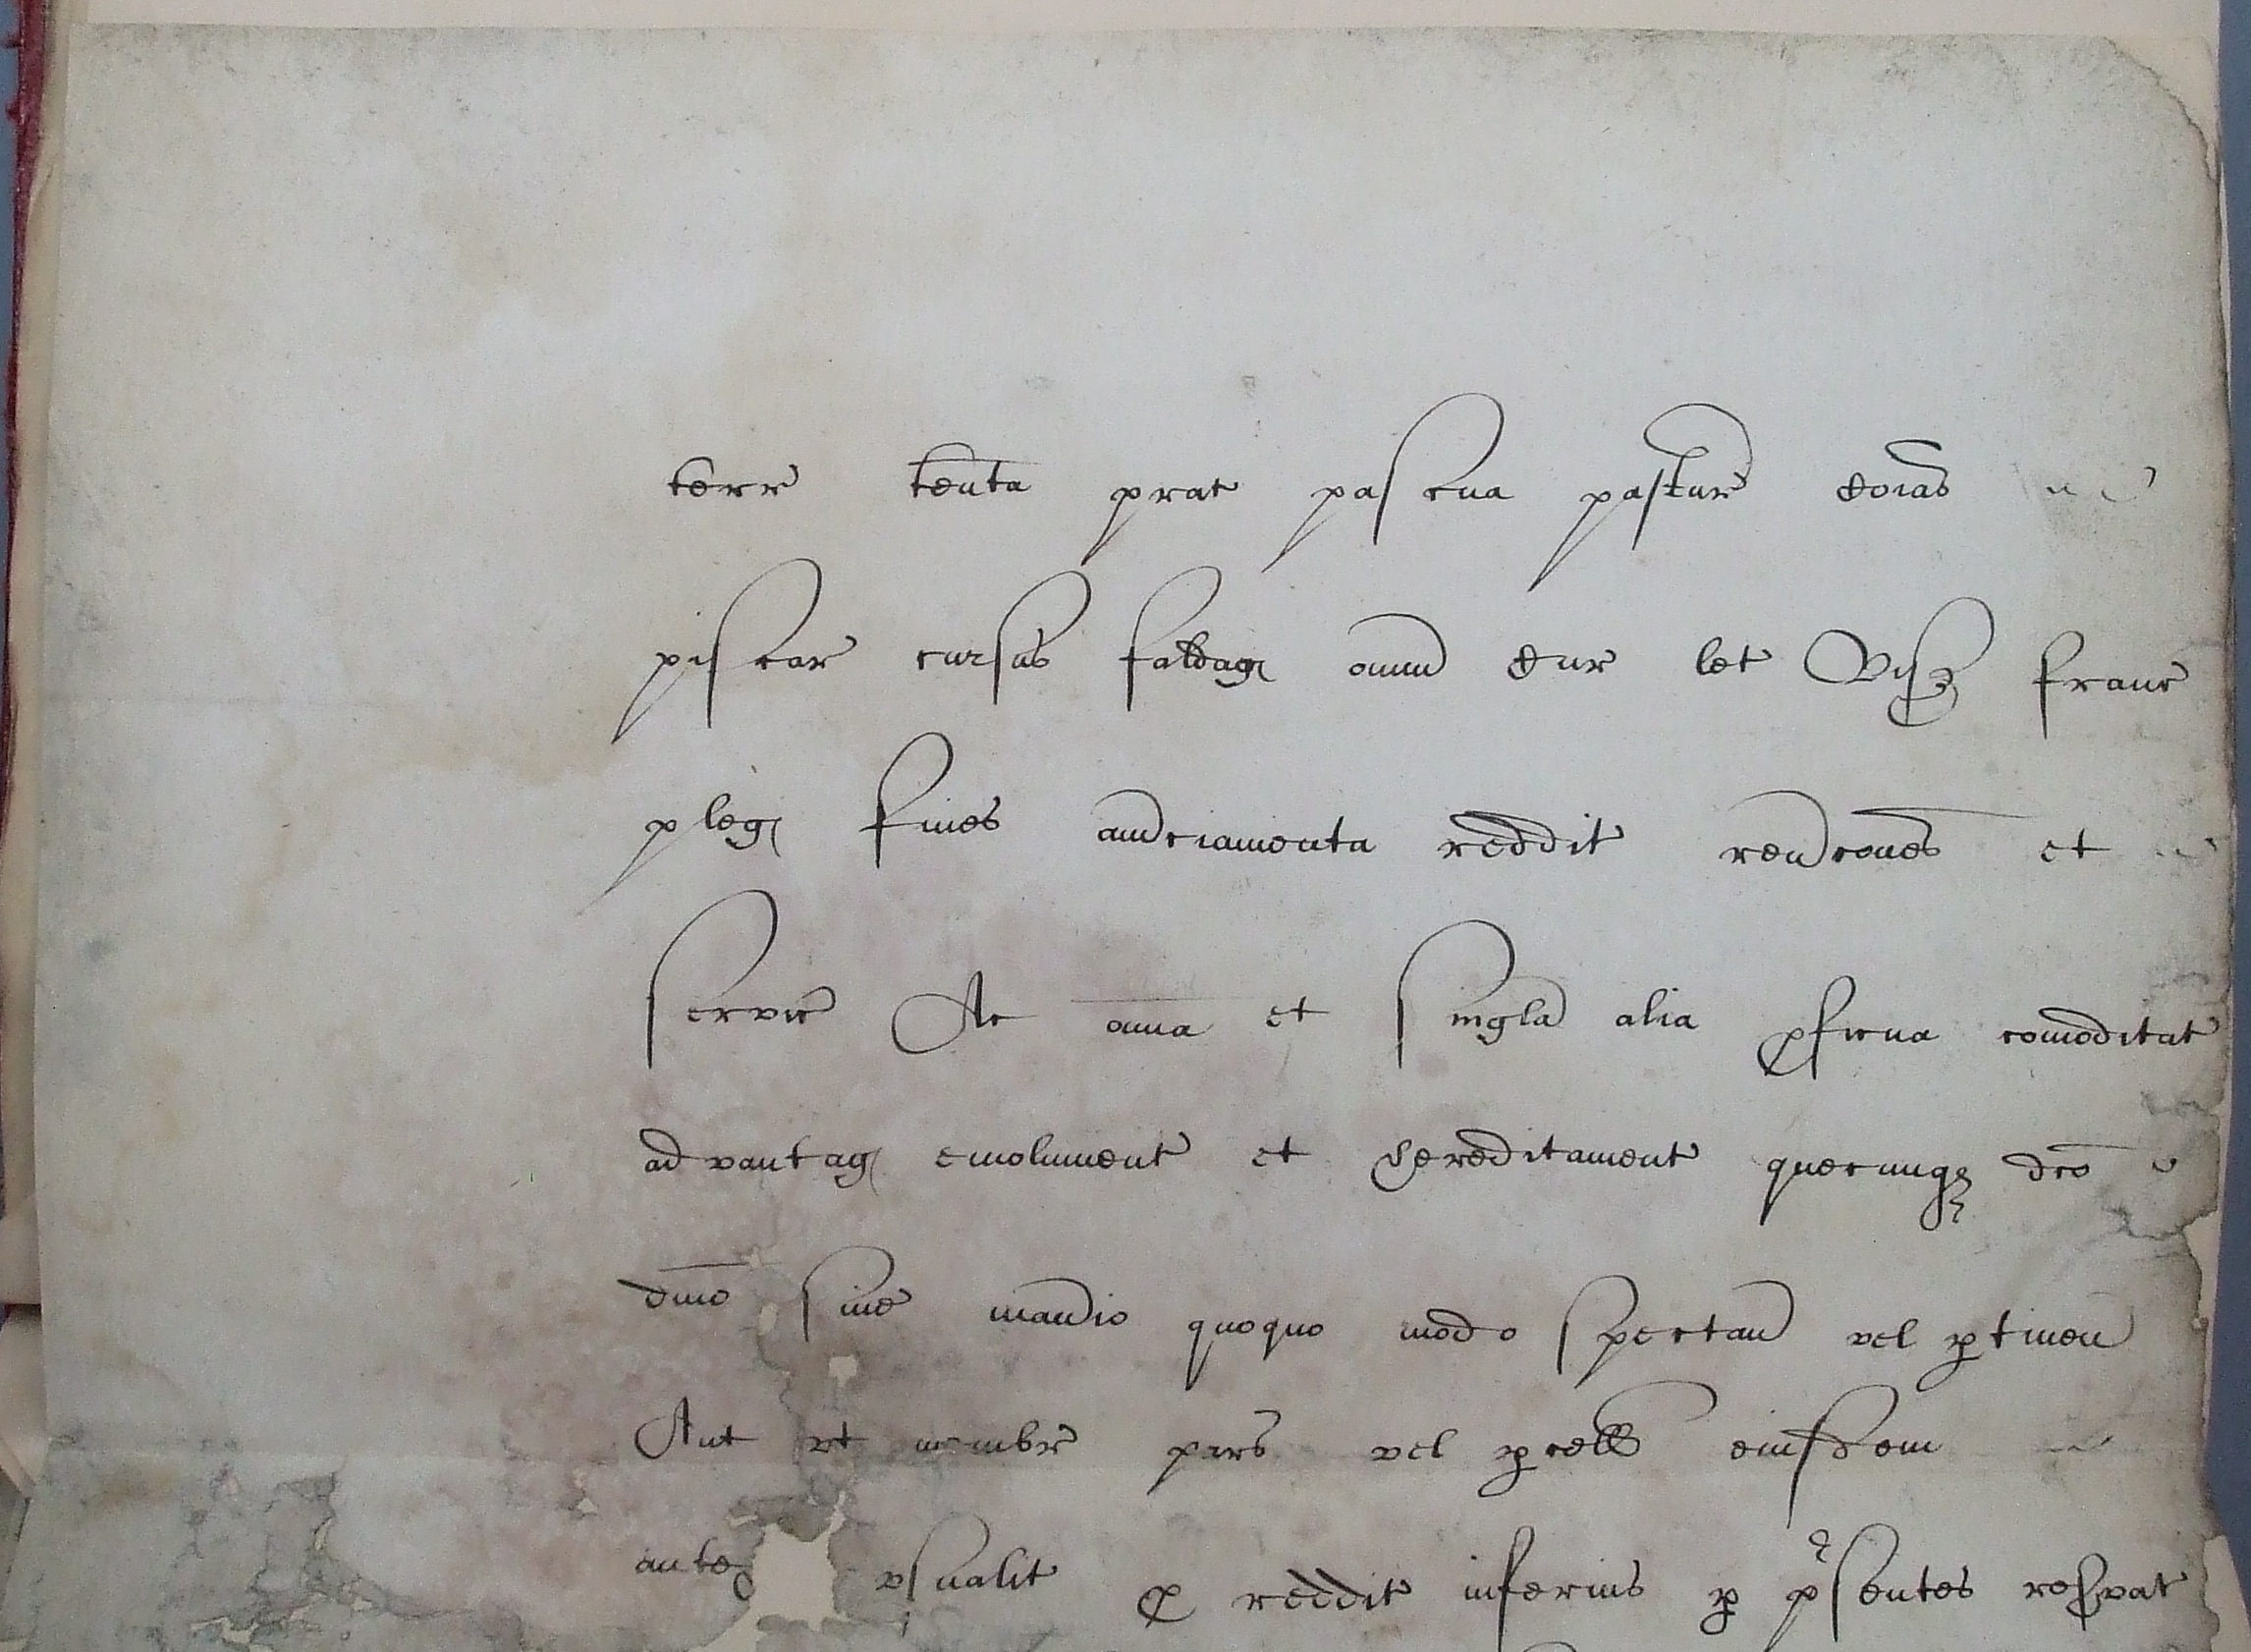 terr tenta prat pascua pastur coias
piscar cursus faldag omnd Cur let Visz franc
pleg fines amdciamenta reddit rendcones et
servic Ac omia et singla alia pficua comoditat
advantag emolument et hereditament quecunq dco
dmo sive mandio quoquo modo spectand vel ptinen
Aut vt membr pars vel pcell eiusdem
antec vsualit p reddit inferius p psentes resvat